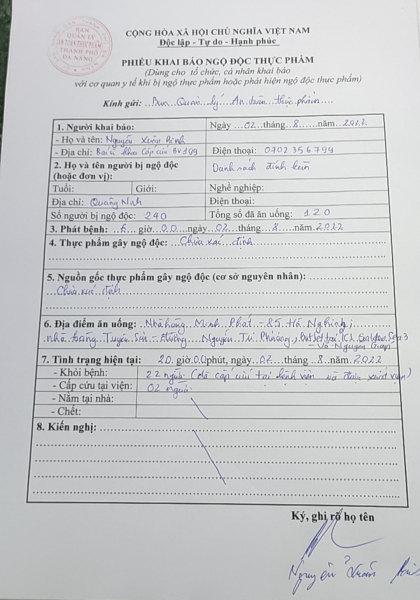 CỘNG HÒA XÃ HỘI CHỦ NGHĨA VIỆT NAM
Độc lập - Tự do - Hạnh phúc
BAN
QUẢN LÝ
AN TOÀN THỰC PHẨM
THÀNH PHỐ
ĐÀ NẴNG
PHIẾU KHAI BÁO NGỘ ĐỘC THỰC PHẨM
(Dùng cho tổ chức, cá nhân khai báo
với cơ quan y tế khi bị ngộ thực phẩm hoặc phát hiện ngộ độc thực phẩm)
Kính gửi: Ban Quản lý An toàn thực phẩm
1. Người khai báo: Ngày 02 tháng 8 năm 2022
- Họ và tên: Nguyễn Xuân
- Địa chỉ: Cấp cứu BV 199 Điện thoại: 0702356799
2. Họ và tên người bị ngộ độc (hoặc đơn vị): Danh sách đính kèm
Tuổi: Giới: Nghề nghiệp:
Địa chỉ: Quảng Ninh Điện thoại:
Số người bị ngộ độc: Tổng số đã ăn uống: 120
3. Phát bệnh: 6 giờ 00 ngày 02 tháng 8 năm 2022
4. Thực phẩm gây ngộ độc: Chưa xác định
5. Nguồn gốc thực phẩm gây ngộ độc (cơ sở nguyên nhân):
Chưa xác định
6. Địa điểm ăn uống: Nhà hàng Minh Phát - 85 Hà
nhà hàng Tuyên Sơn - Đường Nguyễn Tri Phương,
Võ Nguyên Giáp
7. Tình trạng hiện tại: 20 giờ 00 phút, ngày 02 tháng 8 năm 2022
- Khỏi bệnh: 22 người (đã cấp cứu tại bệnh viện và đã xuất viện)
- Cấp cứu tại viện: 02 người
- Nằm tại nhà:
- Chết:
8. Kiến nghị:
Ký, ghi rõ họ tên
Nguyễn Xuân